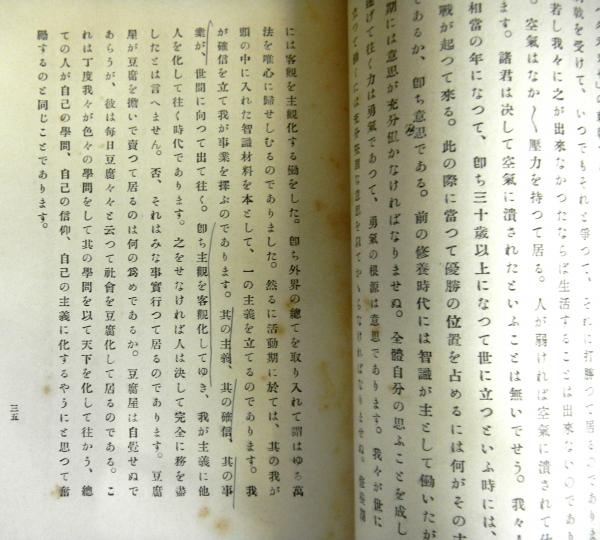 戟を受けて、いつでもそれと爭つて、それに打勝つて居るのであり
若し我々に之が出來なかつたならば生活することは出來ないのであり
。空氣はなか〳〵壓力を持つて居る。人が弱ければ空氣に潰されて仕
ます。諸君は決して空氣に潰されたといふことは無いでせう。我々人
相當の年になつて、卽ち三十歲以上になつて世に立つといふ時には、
戰が起つて來る。此の際に當つて優勝の位置を占めるには何がその主
であるか、卽ち意思である。前の修養時代には智識が主として働いたが
期には意思が充分働かなければなりませぬ。全體自分の思ふことを成し
遂げて往く力は勇氣であつて、勇氣の根源は意思であります。我々が世に
立つて働くには充分
には客觀を主觀化する働をした。卽ち外界の總てを取り入れて謂はゆる萬
法を唯心に歸せしむるのでありました。然るに活動期に於ては、其の我が
頭の中に入れた智識材料を本として、一の主義を立てるのであります。我
が確信を立て我が事業を擇ぶのであります。其の主義、其の確信、其の事
業が、世間に向つて出て往く。卽ち主觀を客觀化してゆき、我が主義に他
人を化して往く時代であります。之をせなければ人は決して完全に務を盡
したとは言へません。否、それはみな事實行つて居るのであります。豆腐
屋が豆腐を擔いで賣つて居るのは何の爲めであるか。豆腐屋は自覺せぬで
あらうが、彼は每日豆腐々々と云つて社會を豆腐化して居るのである。こ
れは丁度我々が色々の學問をして其の學問を以て天下を化して往かう、總
ての人が自己の學問、自己の信仰、自己の主義に化するやうにと思つて奮
鬪するのと同じことであります。
三五